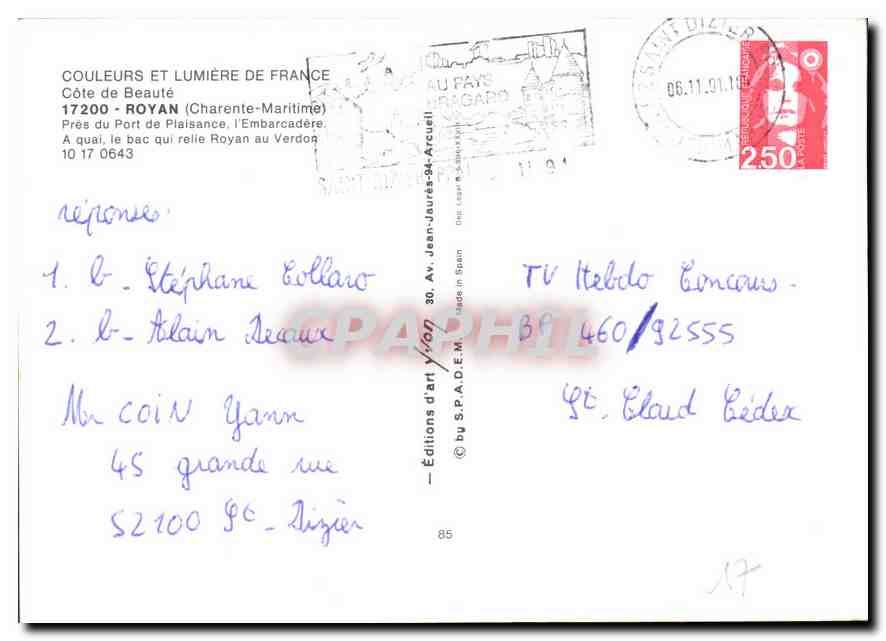 COULEURS ET LUMIÈRE DE FRANCE
Côte de Beauté
17200 - ROYAN (Charente-Maritime)
Près du Port de Plaisance, l'Embarcadère.
A quai, le bac qui relie Royan au Verdon
10 17 0643
AU PAYS
BRAGARD
SAINT DIZIER
SAINT DIZIER
06.11.91
REPUBLIQUE FRANÇAISE
LA POSTE
2,50
réponses:
1. b - Stéphane Collaro
2. b - Alain Decaux
Mr COIN Yann
45 grande rue
52100 St - Dizier
— Éditions d'art Yvon 30, Av. Jean-Jaurès-94-Arcueil
© by S.P.A.D.E.M. Made in Spain Dep. Legal B.
85
TV Hebdo Concours -
BP 460/92555
St. Claud Cédex
17
CPAPHIL